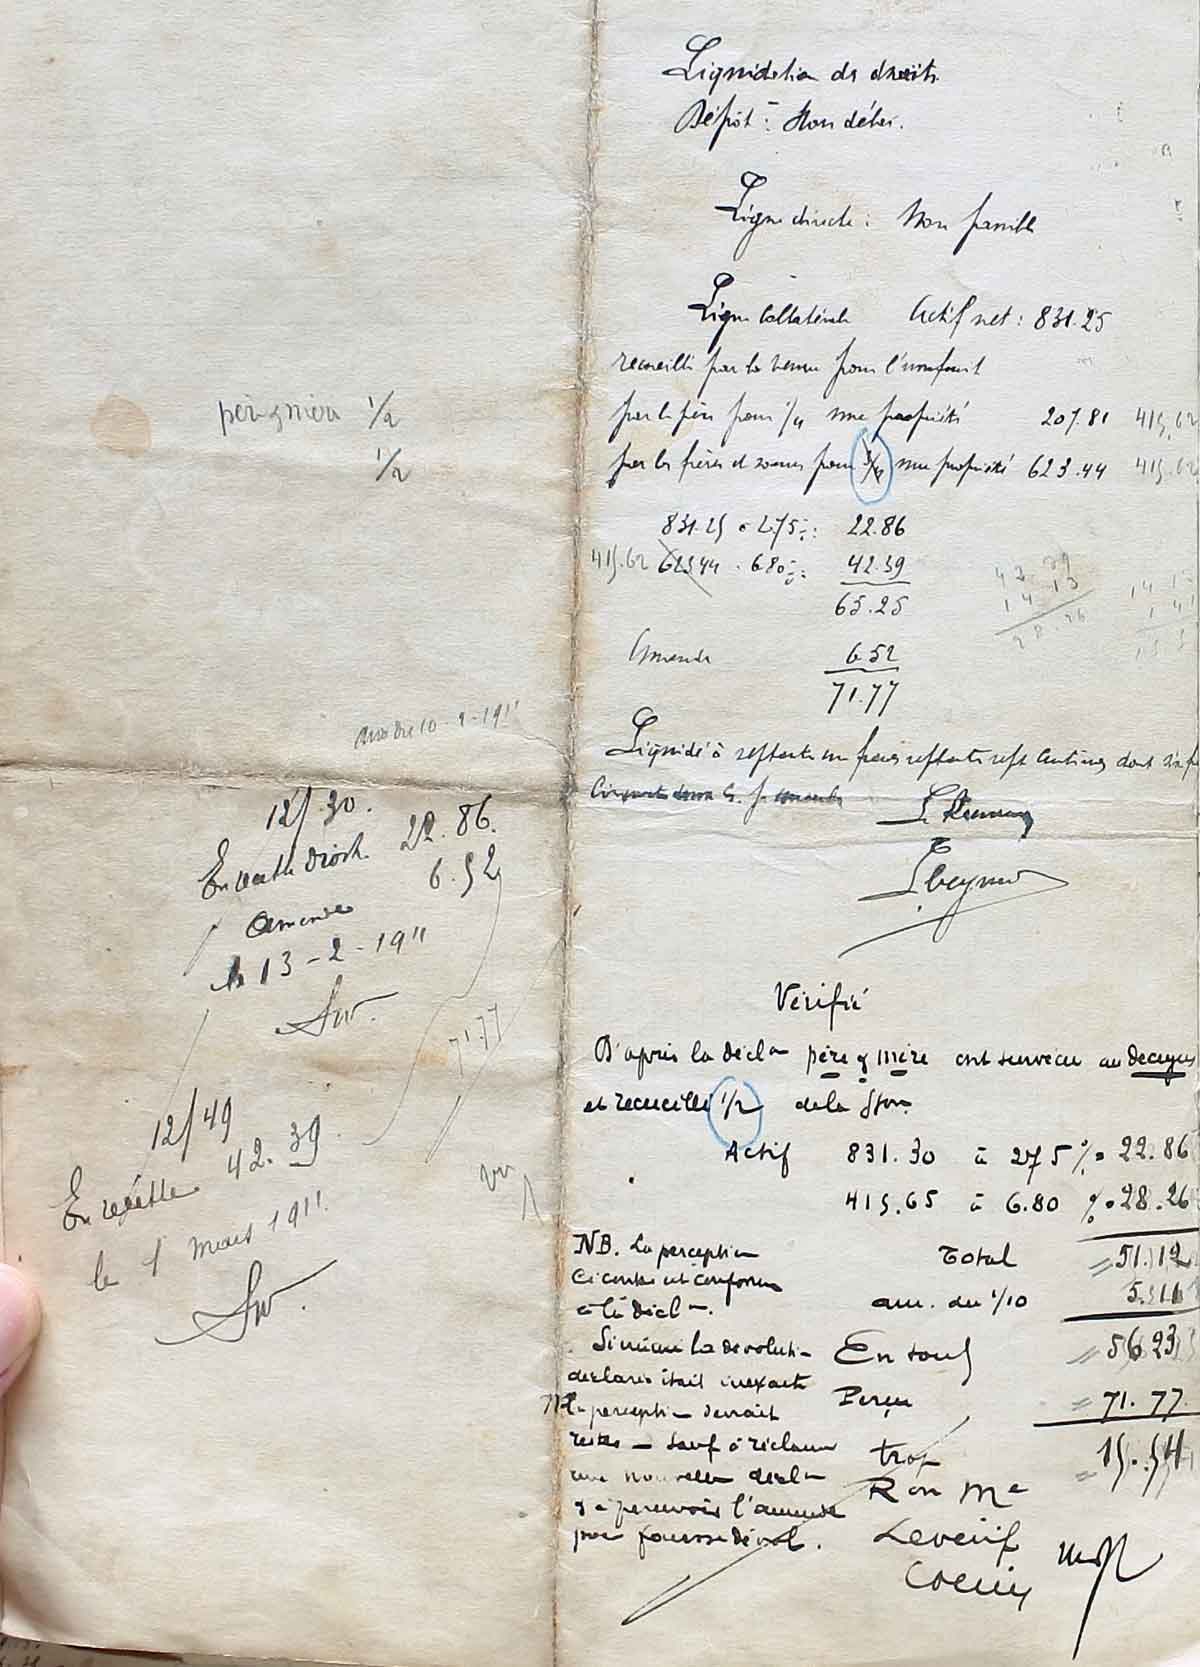 Liquidation de droits
Dépôt : Hors délai.
Ligne directe : Non passible
Ligne Collatérale Actif net : 831.25
recueilli par la veuve pour l'usufruit
par le père pour 1/4 nue propriété 207.81 415,62
par les frères et soeurs pour 3/4 nue propriété 623.44 415.62
831.25 à 2.75 %: 22.86
415.62 623.44 . 6.80 %: 42.39
65.25
42.39
14 13
28.26
Amende 6.52
71.77
père & mère 1/2
1/2
10-2-1911
Liquidé à septante un francs septante sept centimes dont
Vérifié
D'après la décl on père & mère ont survécu au decujus
et recueilli 1/2 de la S ion
Actif 831.30 à 275 % = 22.86
415.65 à 6.80 % = 28.26
Total = 51.12
am. du 1/10 5.11
En tout = 56.23
Perçu = 71.77
trop = 15.54
NB. La perception
ci contre est conforme
à la décl on.
Si même la dévoluti on
déclarée était inexacte
la perception devrait
rester — sauf à réclamer
une nouvelle décl on
& à percevoir l'amende
pour fausse dévol.
12/30.
En recette droits 22.86.
Amende 6.52
le 13-2-1911
71.77
12/49
En recette 42.39
le 1 mars 1911.
vu